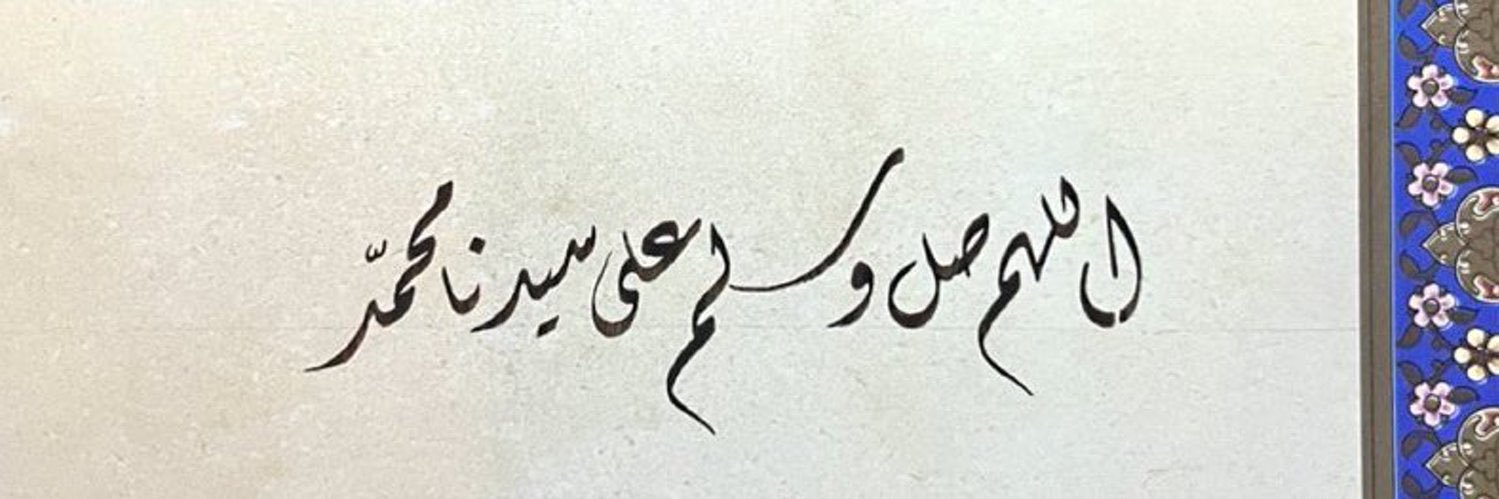 اللهم صل وسلم على سيدنا محمّد